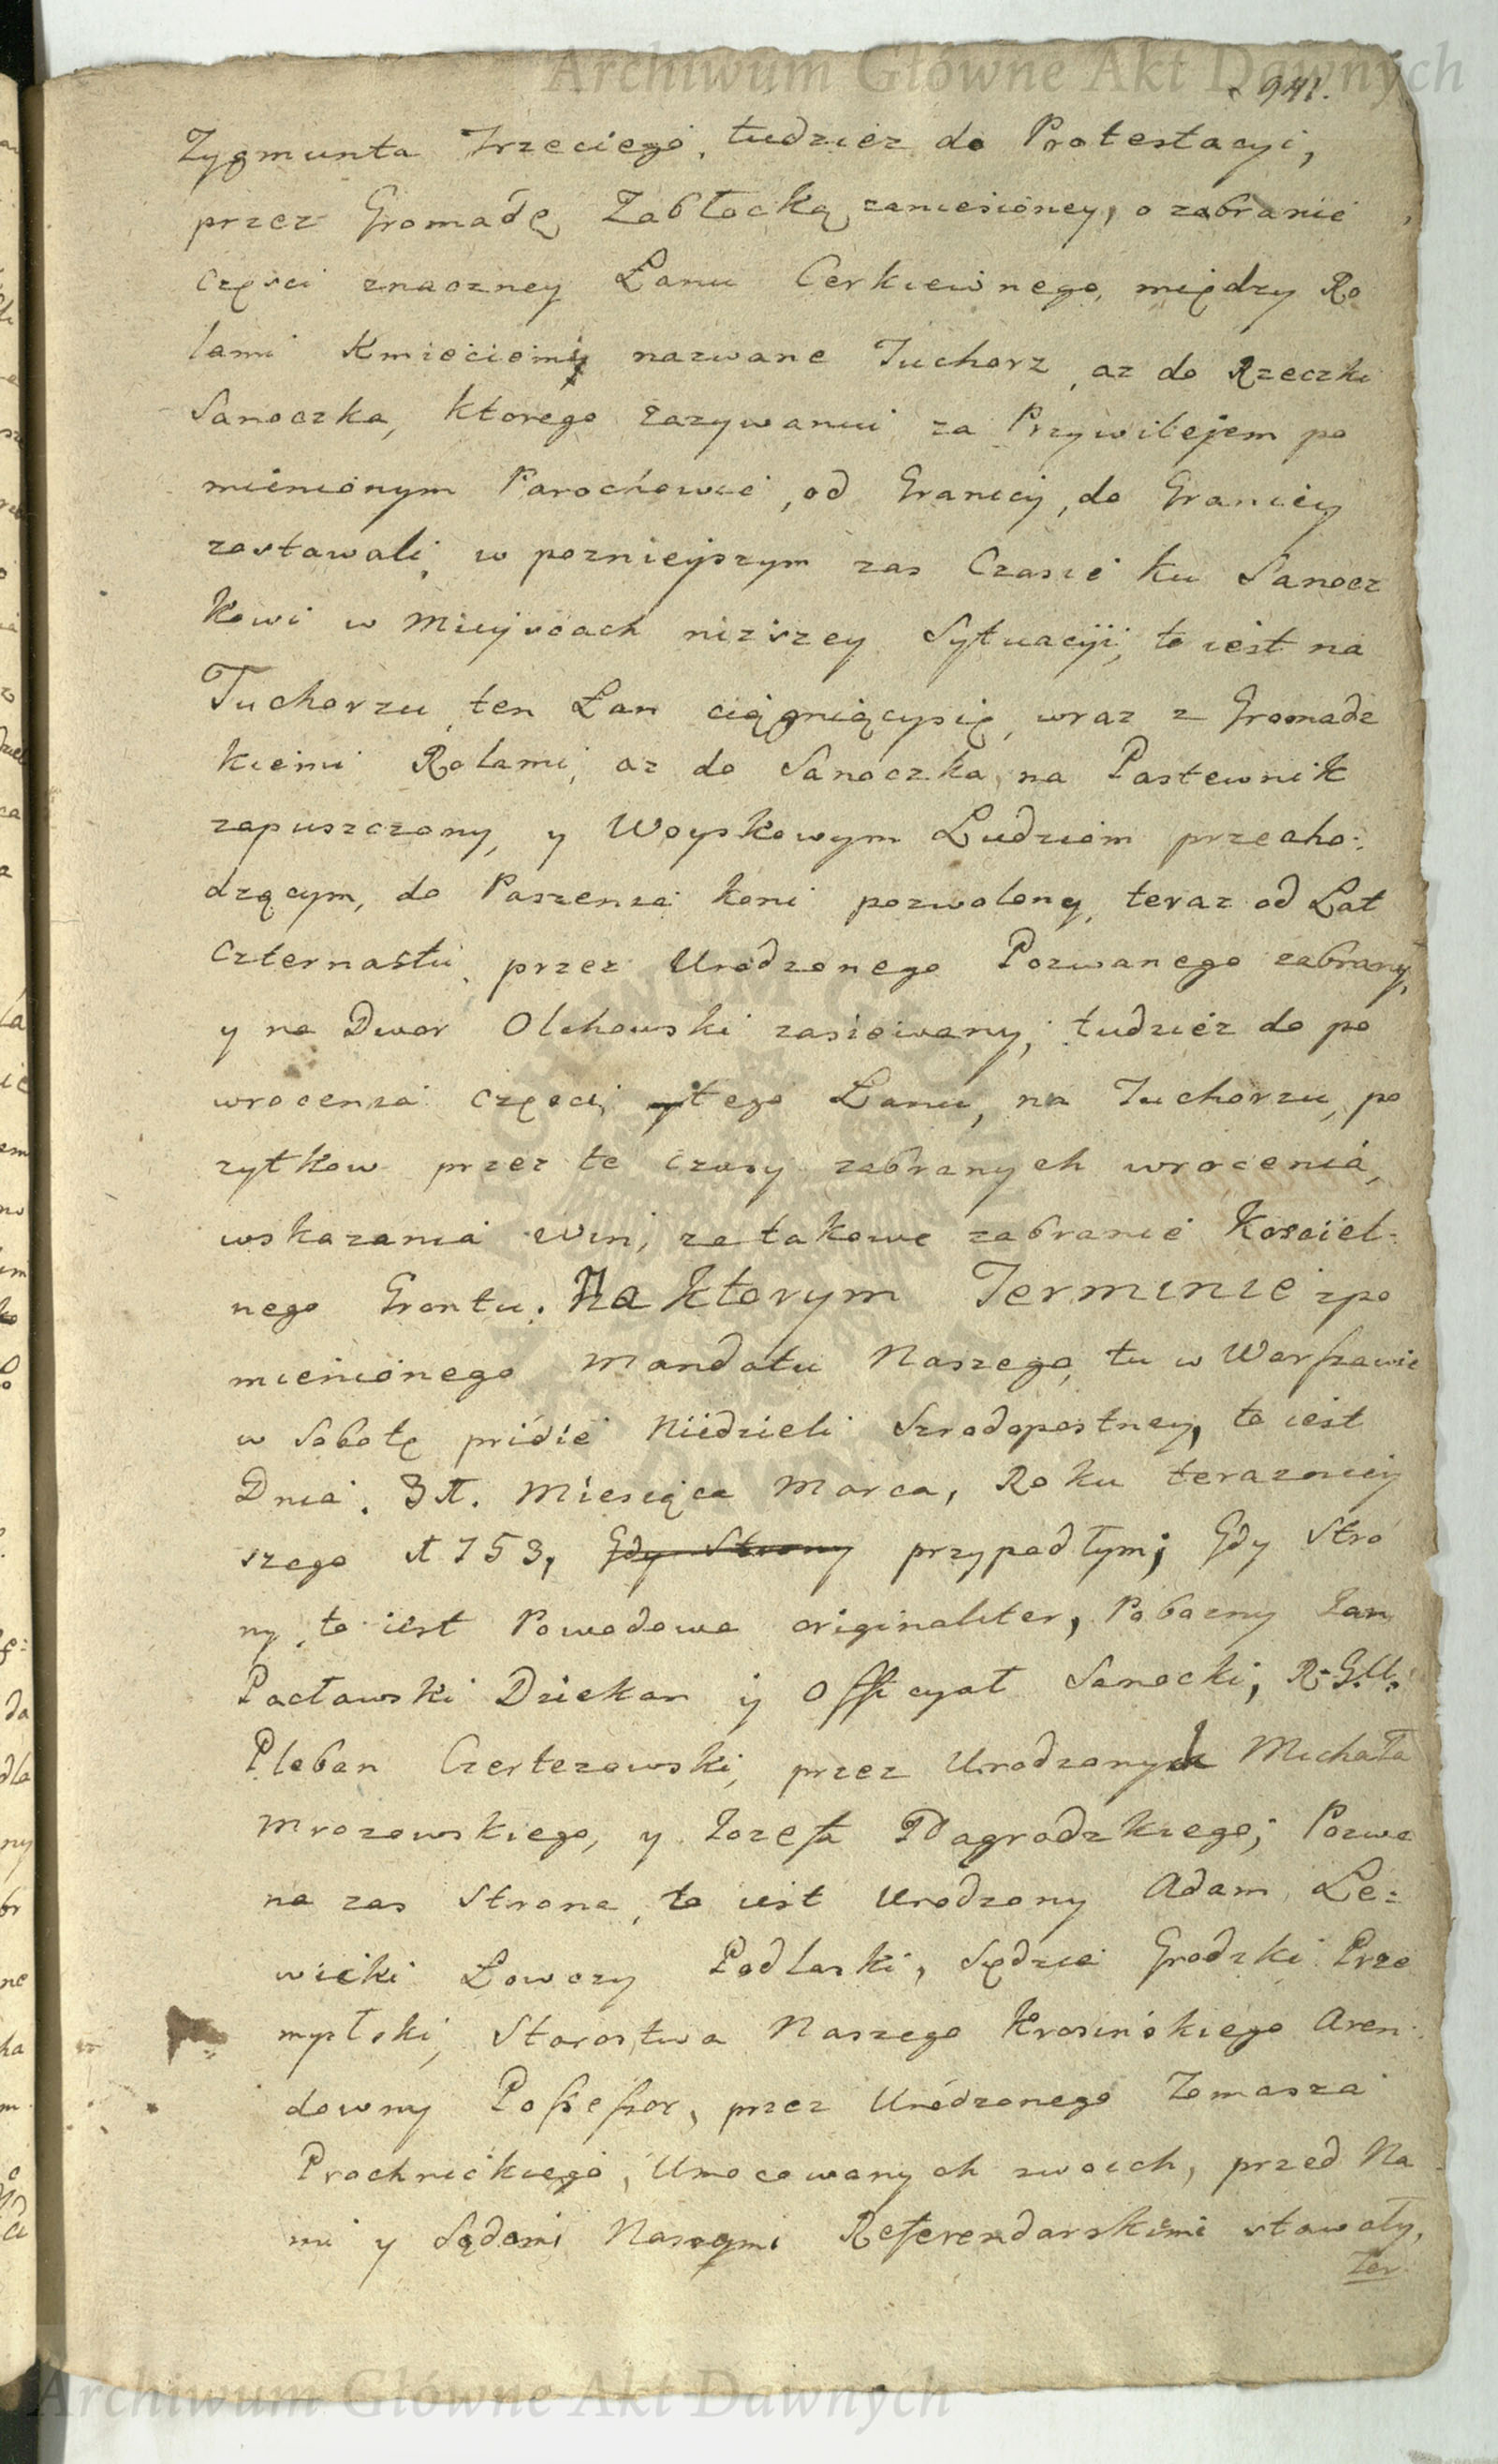 Archiwum Główne Akt Dawnych
941.
Zygmunta Trzeciego, tudziez do Protestacyi,
przez Gromadę Zabłocką zaniesioney, o zabranie
Części znaczney Łanu Cerkiewnego, między Ro
lami Kmieciemi nazwane Tuchorz, az do Rzeczki
Sanoczka, ktorego zazywaniu za Przywilejem po
mienionym Parochowie, od Granicy, do Granicy
zostawali, w pozniejszym zas Czasie ku Sanocz
kowi w Mieyscach nizszey Sytuacyi, to iest na
Tuchorzu, ten Łan ciągniącysię, wraz z Gromadz
kiemi Rolami, az do Sanoczka, na Pastewnik
zapuszczony, y Woyskowym Ludziom przecho:
dzącym, do Paszenia koni pozwolony, teraz od Lat
Czternastu, przez Urodzonego Pozwanego zabrany,
y na Dwor Olchowski zasiewany; tudziez do po
wrocenia Częsci, tego Łanu, na Tuchorzu, po
zytkow przez te czasy zabranych wrocenia,
wskazania Win, za takowe zabranie Kosciel-
nego Gruntu. Na Ktorym Terminie zpo
mienionego Mandatu Naszego, tu w Warszawie
w Sobotę pridie Niedzieli Szrodopostney, to iest
Dnia. 31. Miesiąca Marca, Roku terazniey
szego 1753, Gdy Strony przypadłym; Gdy Stro
ny, to iest Powodowa originaliter, Pobozny Jan
Pacławski Dziekan y Officyał Sanocki, R. G. U.
Pleban Czertezowski, przez Urodzonych Michała
Mrozowskiego, y Jozefa Pogrodzkiego; Pozwa
na zas Strona, to iest Urodzony Adam Le:
wicki Łowczy Podlaski, Sędzia Grodzki Prze
mysłski, Starostwa Naszego Krosinskiego Aren:
downy Possessor, przez Urodzonego Tomasza
Prochnickiego, Umocowanych swoich, przed Na
mi y Sądami Naszymi Referendarskiemi stawały,
ter
Archiwum Główne Akt Dawnych